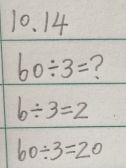 10.14
60÷3=?
6÷3=2
60÷3=20